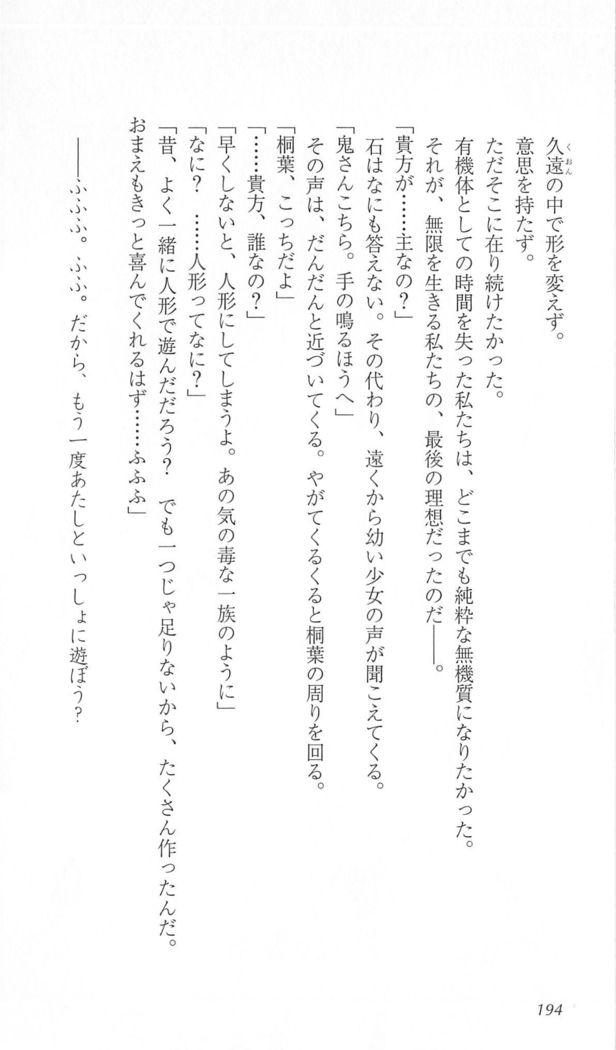 久遠の中で形を変えず。
意思を持たず。
ただそこに在り続けたかった。
有機体としての時間を失った私たちは、どこまでも純粋な無機質になりたかった。
それが、無限を生きる私たちの、最後の理想だったのだ――。
「貴方が……主なの？」
石はなにも答えない。その代わり、遠くから幼い少女の声が聞こえてくる。
「鬼さんこちら。手の鳴るほうへ」
その声は、だんだんと近づいてくる。やがてくるくると桐葉の周りを回る。
「桐葉、こっちだよ」
「……貴方、誰なの？」
「早くしないと、人形にしてしまうよ。あの気の毒な一族のように」
「なに？　……人形ってなに？」
「昔、よく一緒に人形で遊んだだろう？　でも一つじゃ足りないから、たくさん作ったんだ。
おまえもきっと喜んでくれるはず……ふふふ」
――ふふふ。ふふ。だから、もう一度あたしといっしょに遊ぼう？
194